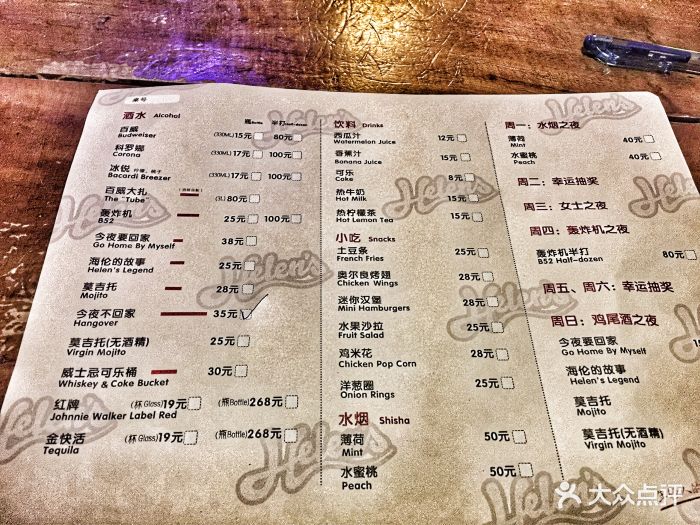 桌号
Helen's
酒水 Alcohol 瓶Bottle 半打Half-dozen
百威 (330ML) 15元 80元
Budweiser
科罗娜 (330ML) 17元 100元
Corona
冰锐 柠檬、桃子 (330ML) 17元 100元
Bacardi Breezer
百威大扎 (3L) 80元
The "Tube"
轰炸机 25元 100元
B52
今夜要回家 38元
Go Home By Myself
海伦的故事 25元
Helen's Legend
莫吉托 28元
Mojito
今夜不回家 35元
Hangover
莫吉托(无酒精) 25元
Virgin Mojito
威士忌可乐桶 30元
Whiskey & Coke Bucket
红牌 (杯Glass) 19元 (瓶Bottle) 268元
Johnnie Walker Label Red
金快活 (杯Glass) 19元 (瓶Bottle) 268元
Tequila
饮料 Drinks
西瓜汁 12元
Watermelon Juice
香蕉汁 15元
Banana Juice
可乐 8元
Coke
热牛奶 15元
Hot Milk
热柠檬茶 15元
Hot Lemon Tea
小吃 Snacks
土豆条 25元
French Fries
奥尔良烤翅 28元
Chicken Wings
迷你汉堡 28元
Mini Hamburgers
水果沙拉 25元
Fruit Salad
鸡米花 28元
Chicken Pop Corn
洋葱圈 25元
Onion Rings
水烟 Shisha
薄荷 50元
Mint
水蜜桃 50元
Peach
周一：水烟之夜
薄荷 40元
Mint
水蜜桃 40元
Peach
周二：幸运抽奖
周三：女士之夜
周四：轰炸机之夜
轰炸机半打 80元
B52 Half-dozen
周五、周六：幸运抽奖
周日：鸡尾酒之夜
今夜要回家
Go Home By Myself
海伦的故事
Helen's Legend
莫吉托
Mojito
莫吉托(无酒精)
Virgin Mojito
大众点评